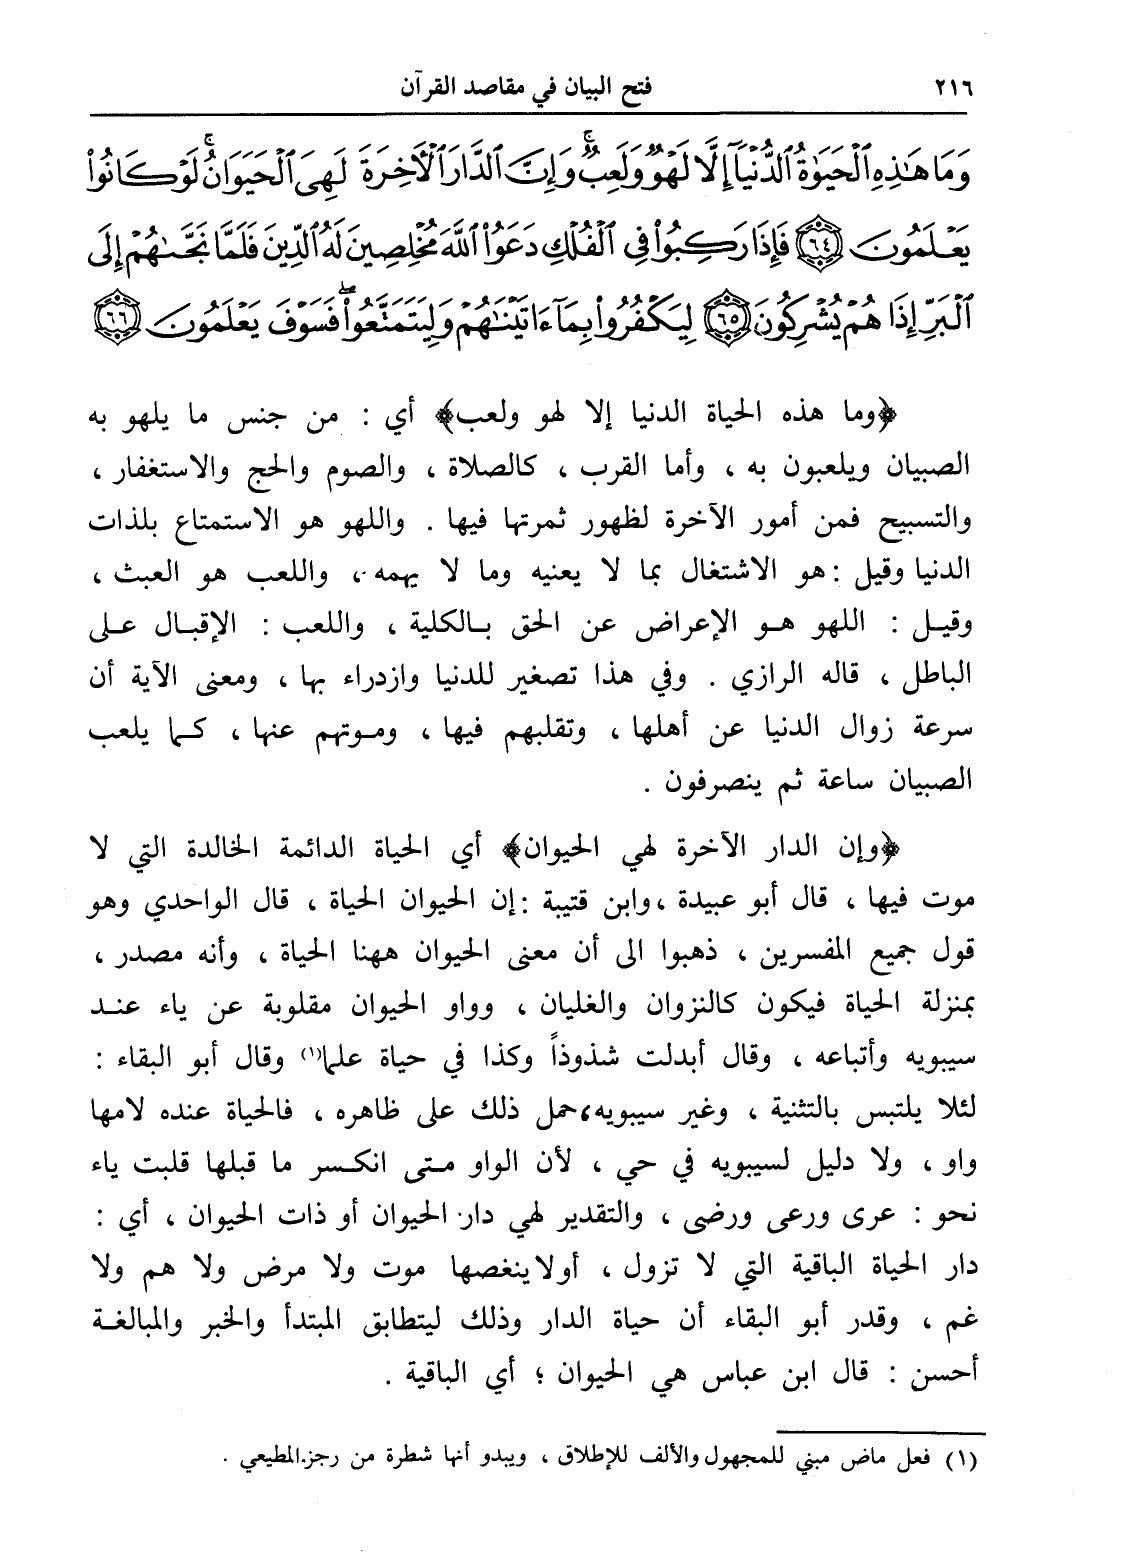 ٢١٦
فتح البيان في مقاصد القرآن
وَمَا هَٰذِهِ ٱلْحَيَوٰةُ ٱلدُّنْيَآ إِلَّا لَهْوٌ وَلَعِبٌ ۚ وَإِنَّ ٱلدَّارَ ٱلْآخِرَةَ لَهِىَ ٱلْحَيَوَانُ ۚ لَوْ كَانُوا۟
يَعْلَمُونَ ٦٤ فَإِذَا رَكِبُوا۟ فِى ٱلْفُلْكِ دَعَوُا۟ ٱللَّهَ مُخْلِصِينَ لَهُ ٱلدِّينَ فَلَمَّا نَجَّىٰهُمْ إِلَى
ٱلْبَرِّ إِذَا هُمْ يُشْرِكُونَ ٦٥ لِيَكْفُرُوا۟ بِمَآ ءَاتَيْنَٰهُمْ وَلِيَتَمَتَّعُوا۟ ۖ فَسَوْفَ يَعْلَمُونَ ٦٦
﴿وما هذه الحياة الدنيا إلا لهو ولعب﴾ أي : من جنس ما يلهو به
الصبيان ويلعبون به ، وأما القرب ، كالصلاة ، والصوم والحج والاستغفار ،
والتسبيح فمن أمور الآخرة لظهور ثمرتها فيها . واللهو هو الاستمتاع بلذات
الدنيا وقيل : هو الاشتغال بما لا يعنيه وما لا يهمه ، واللعب هو العبث ،
وقيـل : اللهو هـو الإعراض عن الحق بـالكلية ، واللعب : الإقبـال عـلى
الباطل ، قاله الرازي . وفي هذا تصغير للدنيا وازدراء بها ، ومعنى الآية أن
سرعة زوال الدنيا عن أهلها ، وتقلبهم فيها ، ومـوتهم عنها ، كـما يلعب
الصبيان ساعة ثم ينصرفون .
﴿وإن الدار الآخرة لهي الحيوان﴾ أي الحياة الدائمة الخالدة التي لا
موت فيها ، قال أبو عبيدة ، وابن قتيبة : إن الحيوان الحياة ، قال الواحدي وهو
قول جميع المفسرين ، ذهبوا الى أن معنى الحيوان ههنا الحياة ، وأنه مصدر ،
بمنزلة الحياة فيكون كالنزوان والغليان ، وواو الحيوان مقلوبة عن ياء عنـد
سيبويه وأتباعه ، وقال أبدلت شذوذاً وكذا في حياة علما(١) وقال أبو البقاء :
لئلا يلتبس بالتثنية ، وغير سيبويه ، حمل ذلك على ظاهره ، فالحياة عنده لامها
واو ، ولا دليل لسيبويه في حي ، لأن الواو مـتى انكـسر ما قبلها قلبت ياء
نحو : عرى ورعى ورضى ، والتقدير لهي دار الحيوان أو ذات الحيوان ، أي :
دار الحياة الباقية التي لا تزول ، أولا ينغصها موت ولا مرض ولا هم ولا
غم ، وقدر أبو البقاء أن حياة الدار وذلك ليتطابق المبتدأ والخبر والمبالغـة
أحسن : قال ابن عباس هي الحيوان ؛ أي الباقية .
(١) فعل ماض مبني للمجهول والألف للإطلاق ، ويبدو أنها شطرة من رجز.المطيعي .